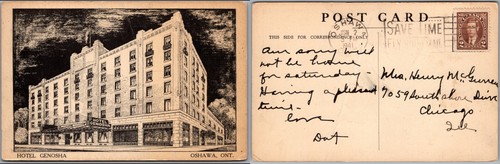 HOTEL GENOSHA
OSHAWA, ONT.
POST CARD
THIS SIDE FOR CORRESPONDENCE ONLY
OSHAWA
SAVE TIME
Am sorry will
not be home
for Saturday
Having a pleasant
time -
Love
Dot
Mrs. Henry McGurren
7059 South Shore Drive
Chicago
Ill